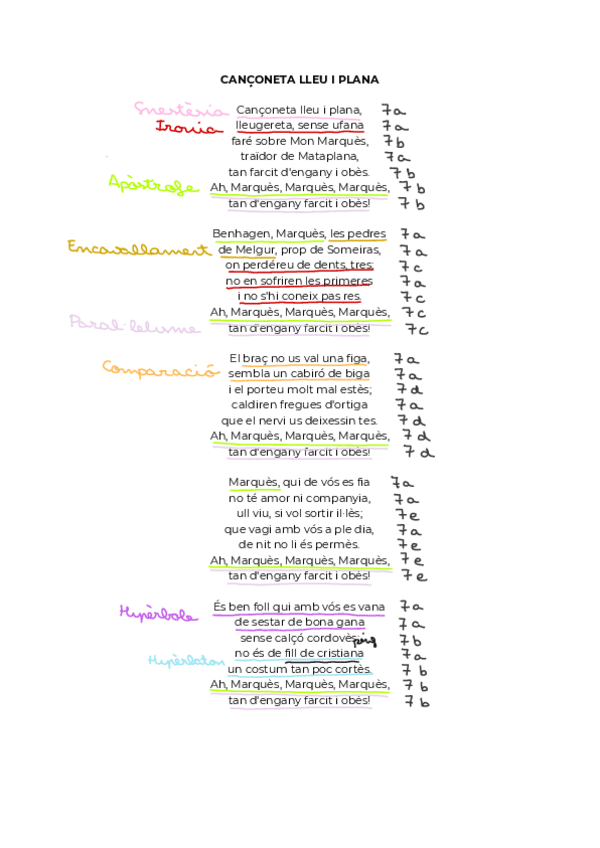 CANÇONETA LLEU I PLANA
Sinestèsia Cançoneta lleu i plana, 7a
Ironia lleugereta, sense ufana 7a
faré sobre Mon Marquès, 7b
traïdor de Mataplana, 7a
tan farcit d'engany i obès. 7b
Apòstrofe Ah, Marquès, Marquès, Marquès, 7b
tan d'engany farcit i obès! 7b
Benhagen, Marquès, les pedres 7a
Encavallament de Melgur, prop de Someiras, 7a
on perdéreu de dents, tres; 7c
no en sofriren les primeres 7a
i no s'hi coneix pas res. 7c
Ah, Marquès, Marquès, Marquès, 7c
Paral·lelisme tan d'engany farcit i obès! 7c
El braç no us val una figa, 7a
Comparació sembla un cabiró de biga 7a
i el porteu molt mal estès; 7d
caldiren fregues d'ortiga 7a
que el nervi us deixessin tes. 7d
Ah, Marquès, Marquès, Marquès, 7d
tan d'engany farcit i obès! 7d
Marquès, qui de vós es fia 7a
no té amor ni companyia, 7a
ull viu, si vol sortir il·lès; 7e
que vagi amb vós a ple dia, 7a
de nit no li és permès. 7e
Ah, Marquès, Marquès, Marquès, 7e
tan d'engany farcit i obès! 7e
Hipèrbole És ben foll qui amb vós es vana 7a
de sestar de bona gana 7a
sense calçó cordovès; 7b
Hipèrbaton no és de fill de cristiana 7a
un costum tan poc cortès. 7b
Ah, Marquès, Marquès, Marquès, 7b
tan d'engany farcit i obès! 7b